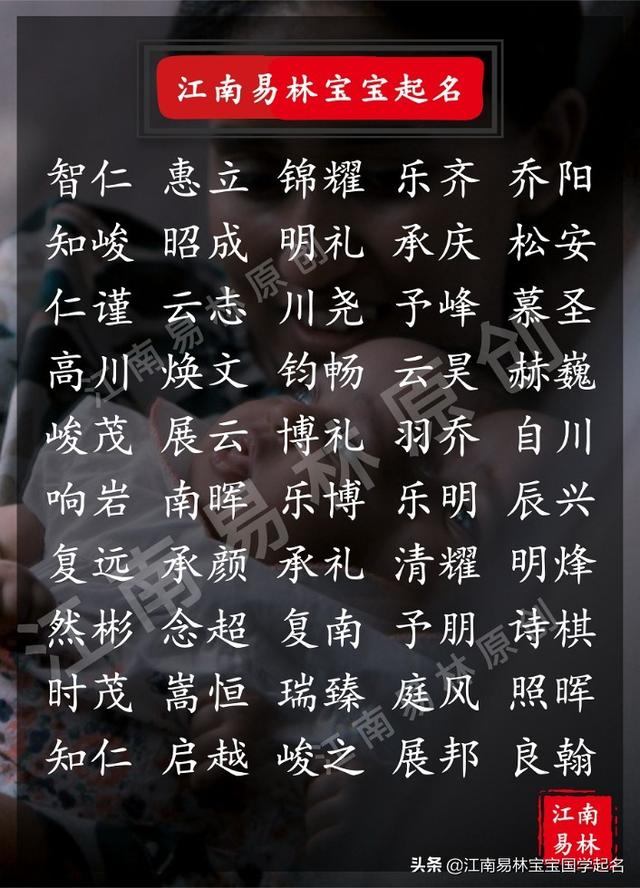 江南易林宝宝起名
智仁 惠立 锦耀 乐齐 乔阳
知峻 昭成 明礼 承庆 松安
仁谨 云志 川尧 予峰 慕圣
高川 焕文 钧畅 云昊 赫巍
峻茂 展云 博礼 羽乔 自川
响岩 南晖 乐博 乐明 辰兴
复远 承颜 承礼 清耀 明烽
然彬 念超 复南 予朋 诗棋
时茂 嵩恒 瑞臻 庭风 照晖
知仁 启越 峻之 展邦 良翰
江南易林原创
江南易林原创
江南易林原创
江南
易林
头条 @江南易林宝宝国学起名